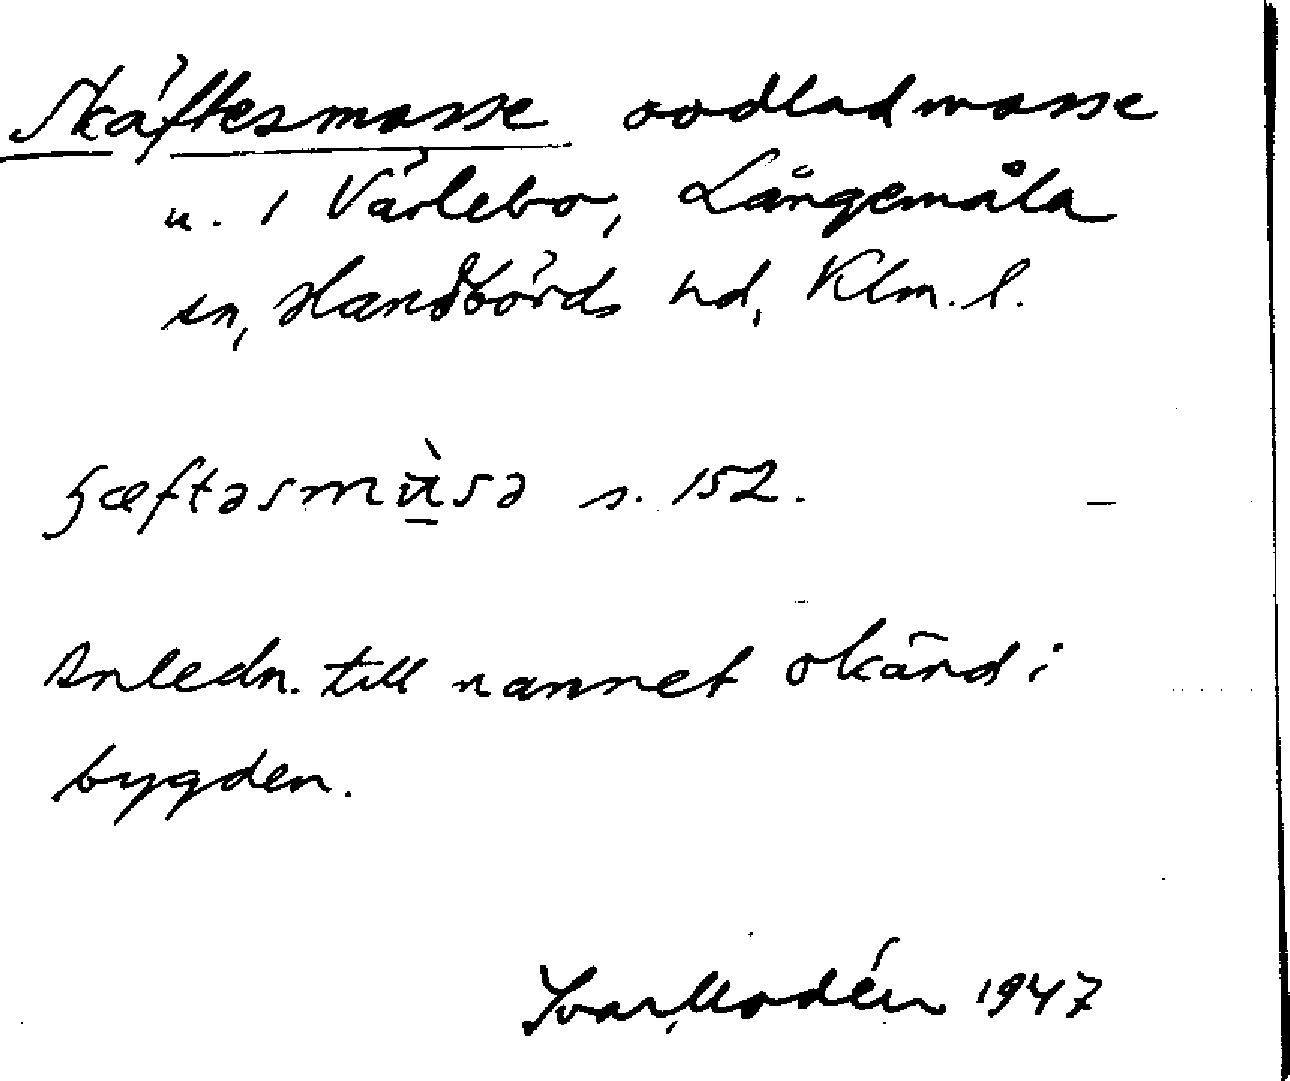 Skäftesmosse oodlad mosse
u. 1 Värlebo, Långemåla
sn, Handbörds hd, Klm. l.
s. 152.
Anledn. till namnet okänd i
bygden.
Ivar Modéer 1947